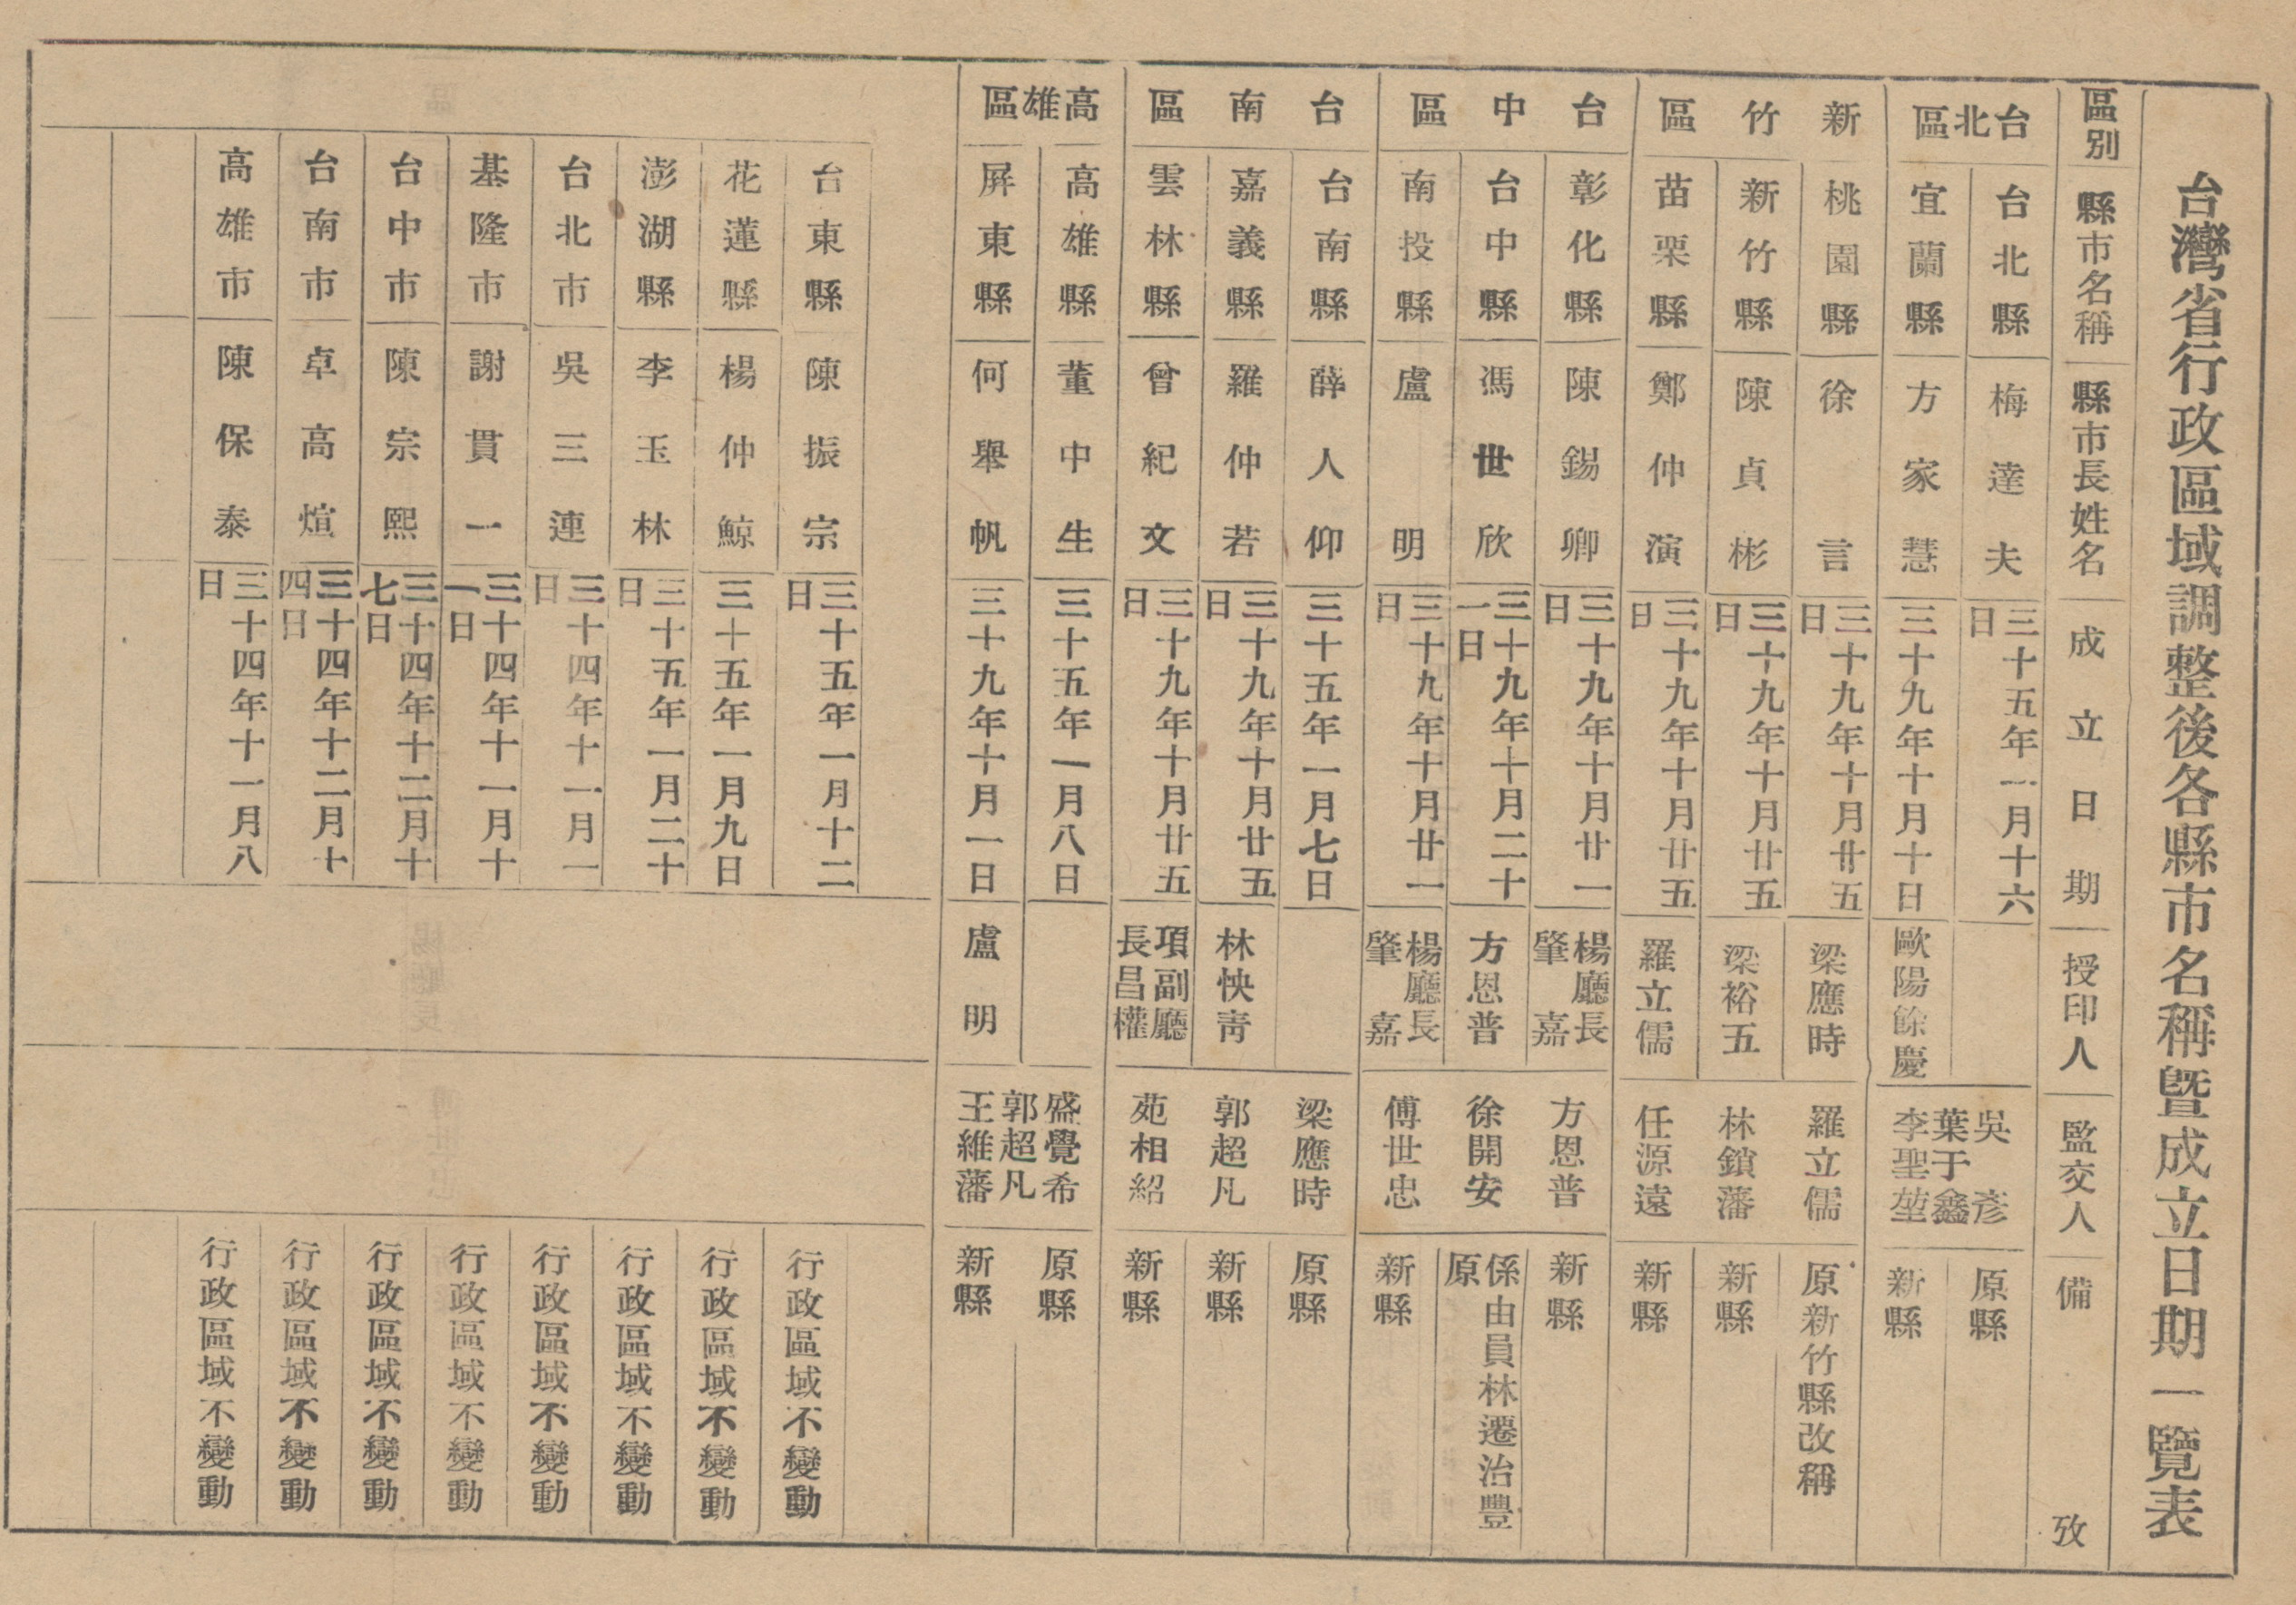 台灣省行政區域調整後各縣市名稱暨成立日期一覽表
區別 縣市名稱 縣市長姓名 成立日期 授印人 監交人 備攷
台北區
台北縣 梅達夫 三十五年一月十六日 原縣
宜蘭縣 方家慧 三十九年十月十日 歐陽餘慶 新縣
吳彥
葉于鑫
李聖堃
新竹區
桃園縣 徐言 三十九年十月廿五日 梁應時 羅立儒 原新竹縣改稱
新竹縣 陳貞彬 三十九年十月廿五日 梁裕五 林鎖藩 新縣
苗栗縣 鄭仲演 三十九年十月廿五日 羅立儒 任源遠 新縣
台中區
彰化縣 陳錫卿 三十九年十月廿一日 楊廳長肇嘉 方恩普 新縣
台中縣 馮世欣 三十九年十月二十一日 方恩普 徐開安 係由員林遷治豐原
南投縣 盧明 三十九年十月廿一日 楊廳長肇嘉 傅世忠 新縣
台南區
台南縣 薛人仰 三十五年一月七日 梁應時 原縣
嘉義縣 羅仲若 三十九年十月廿五日 林怏靑 郭超凡 新縣
雲林縣 曾紀文 三十九年十月廿五日 項副廳長昌權 苑相紹 新縣
高雄區
高雄縣 董中生 三十五年一月八日 原縣
屏東縣 何舉帆 三十九年十月一日 盧明 新縣
盛覺希
郭超凡
王維藩
台東縣 陳振宗 三十五年一月十二日 行政區域不變動
花蓮縣 楊仲鯨 三十五年一月九日 行政區域不變動
澎湖縣 李玉林 三十五年一月二十日 行政區域不變動
台北市 吳三連 三十四年十一月一日 行政區域不變動
基隆市 謝貫一 三十四年十一月十一日 行政區域不變動
台中市 陳宗熙 三十四年十二月十七日 行政區域不變動
台南市 卓高煊 三十四年十二月十四日 行政區域不變動
高雄市 陳保泰 三十四年十一月八日 行政區域不變動